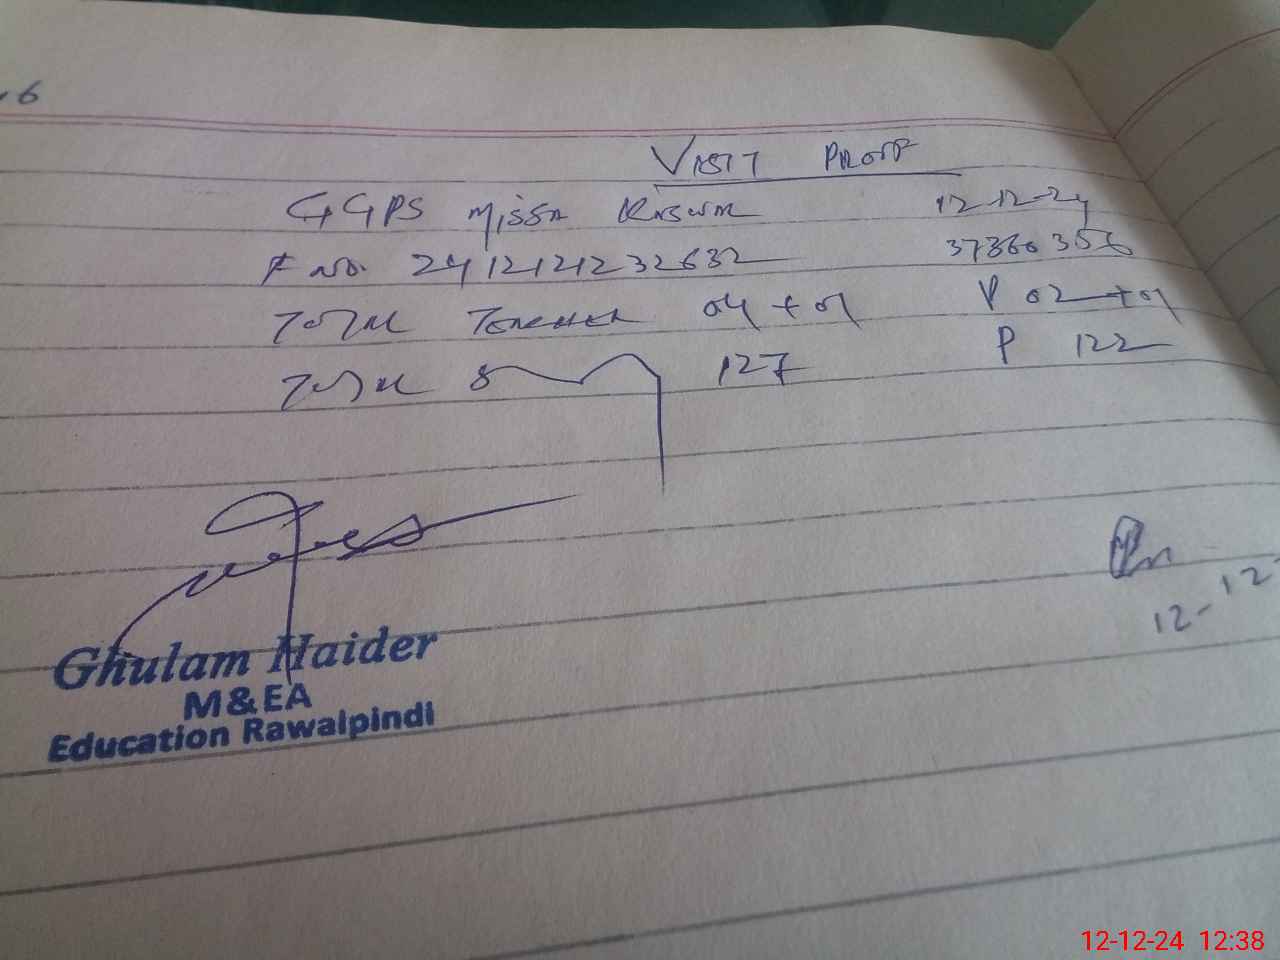 .6
VISIT PROOF
GGPS MISSA KASWAL 12-12-24
F NO. 2412121232632 37360356
TOTAL TEACHER 04 + 01 P 02 + 01
TOTAL 127 P 122
Ghulam Haider
M&EA
Education Rawalpindi
12-12-
12-12-24 12:38